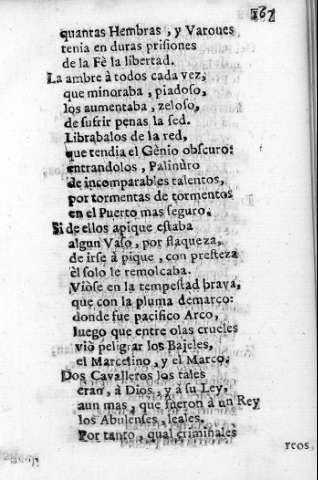 167
quantas Hembras, y Varones
tenia en duras prisiones
de la Fè la libertad.
La ambre à todos cada vez,
que minoraba, piadoso,
los aumentaba, zeloso,
de sufrir penas la sed.
Librabalos de la red,
que tendia el Gènio obscuro:
entrandolos, Palinùro
de incomparables talentos,
por tormentas de tormentos
en el Puerto mas seguro.
Si de ellos apique estaba
algun Vaso, por flaqueza,
de irse à pique, con presteza
èl solo le remolcaba.
Viòse en la tempestad brava,
que con la pluma demarco:
donde fue pacifico Arco,
luego que entre olas crueles
viò peligrar los Bajeles,
el Marcelino, y el Marco.
Dos Cavalleros los tales
eran, à Dios, y à su Ley,
aun mas, que fueron à un Rey
los Abulenses, leales.
Por tanto, qual criminales
reos,